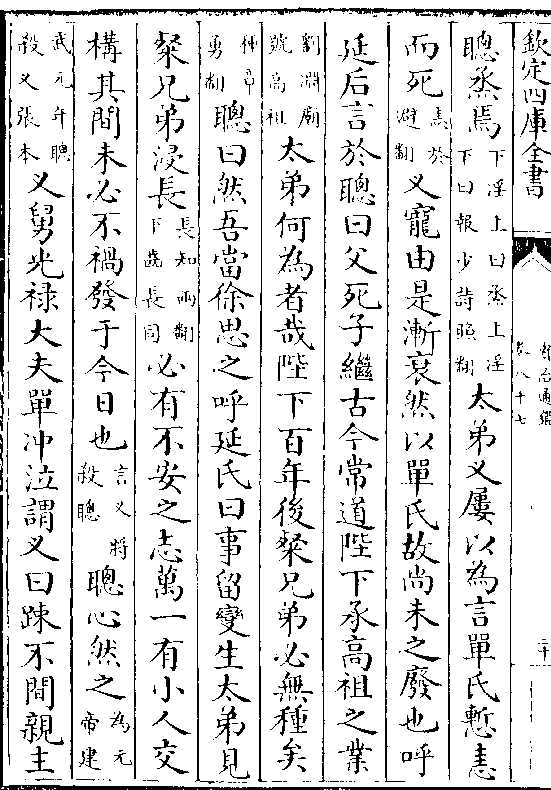 欽定四庫全書
資治通鑑
卷八十七
聰烝焉下淫上曰烝上淫下曰報少詩照翻太弟乂屢以為言單氏慙恚
而死恚於避翻乂寵由是漸衰然以單氏故尚未之廢也呼
延后言於聰曰父死子繼古今常道陛下承高祖之業
劉淵廟號高祖太弟何為者哉陛下百年後粲兄弟必無種矣
種章勇翻聰曰然吾當徐思之呼延氏曰事留變生太弟見
粲兄弟浸長長知兩翻下歲長同必有不安之志萬一有小人交
構其間未必不禍發于今日也言乂將殺聰聰心然之為元帝建
武元年聰殺乂張本乂舅光祿大夫單冲泣謂乂曰疎不間親主